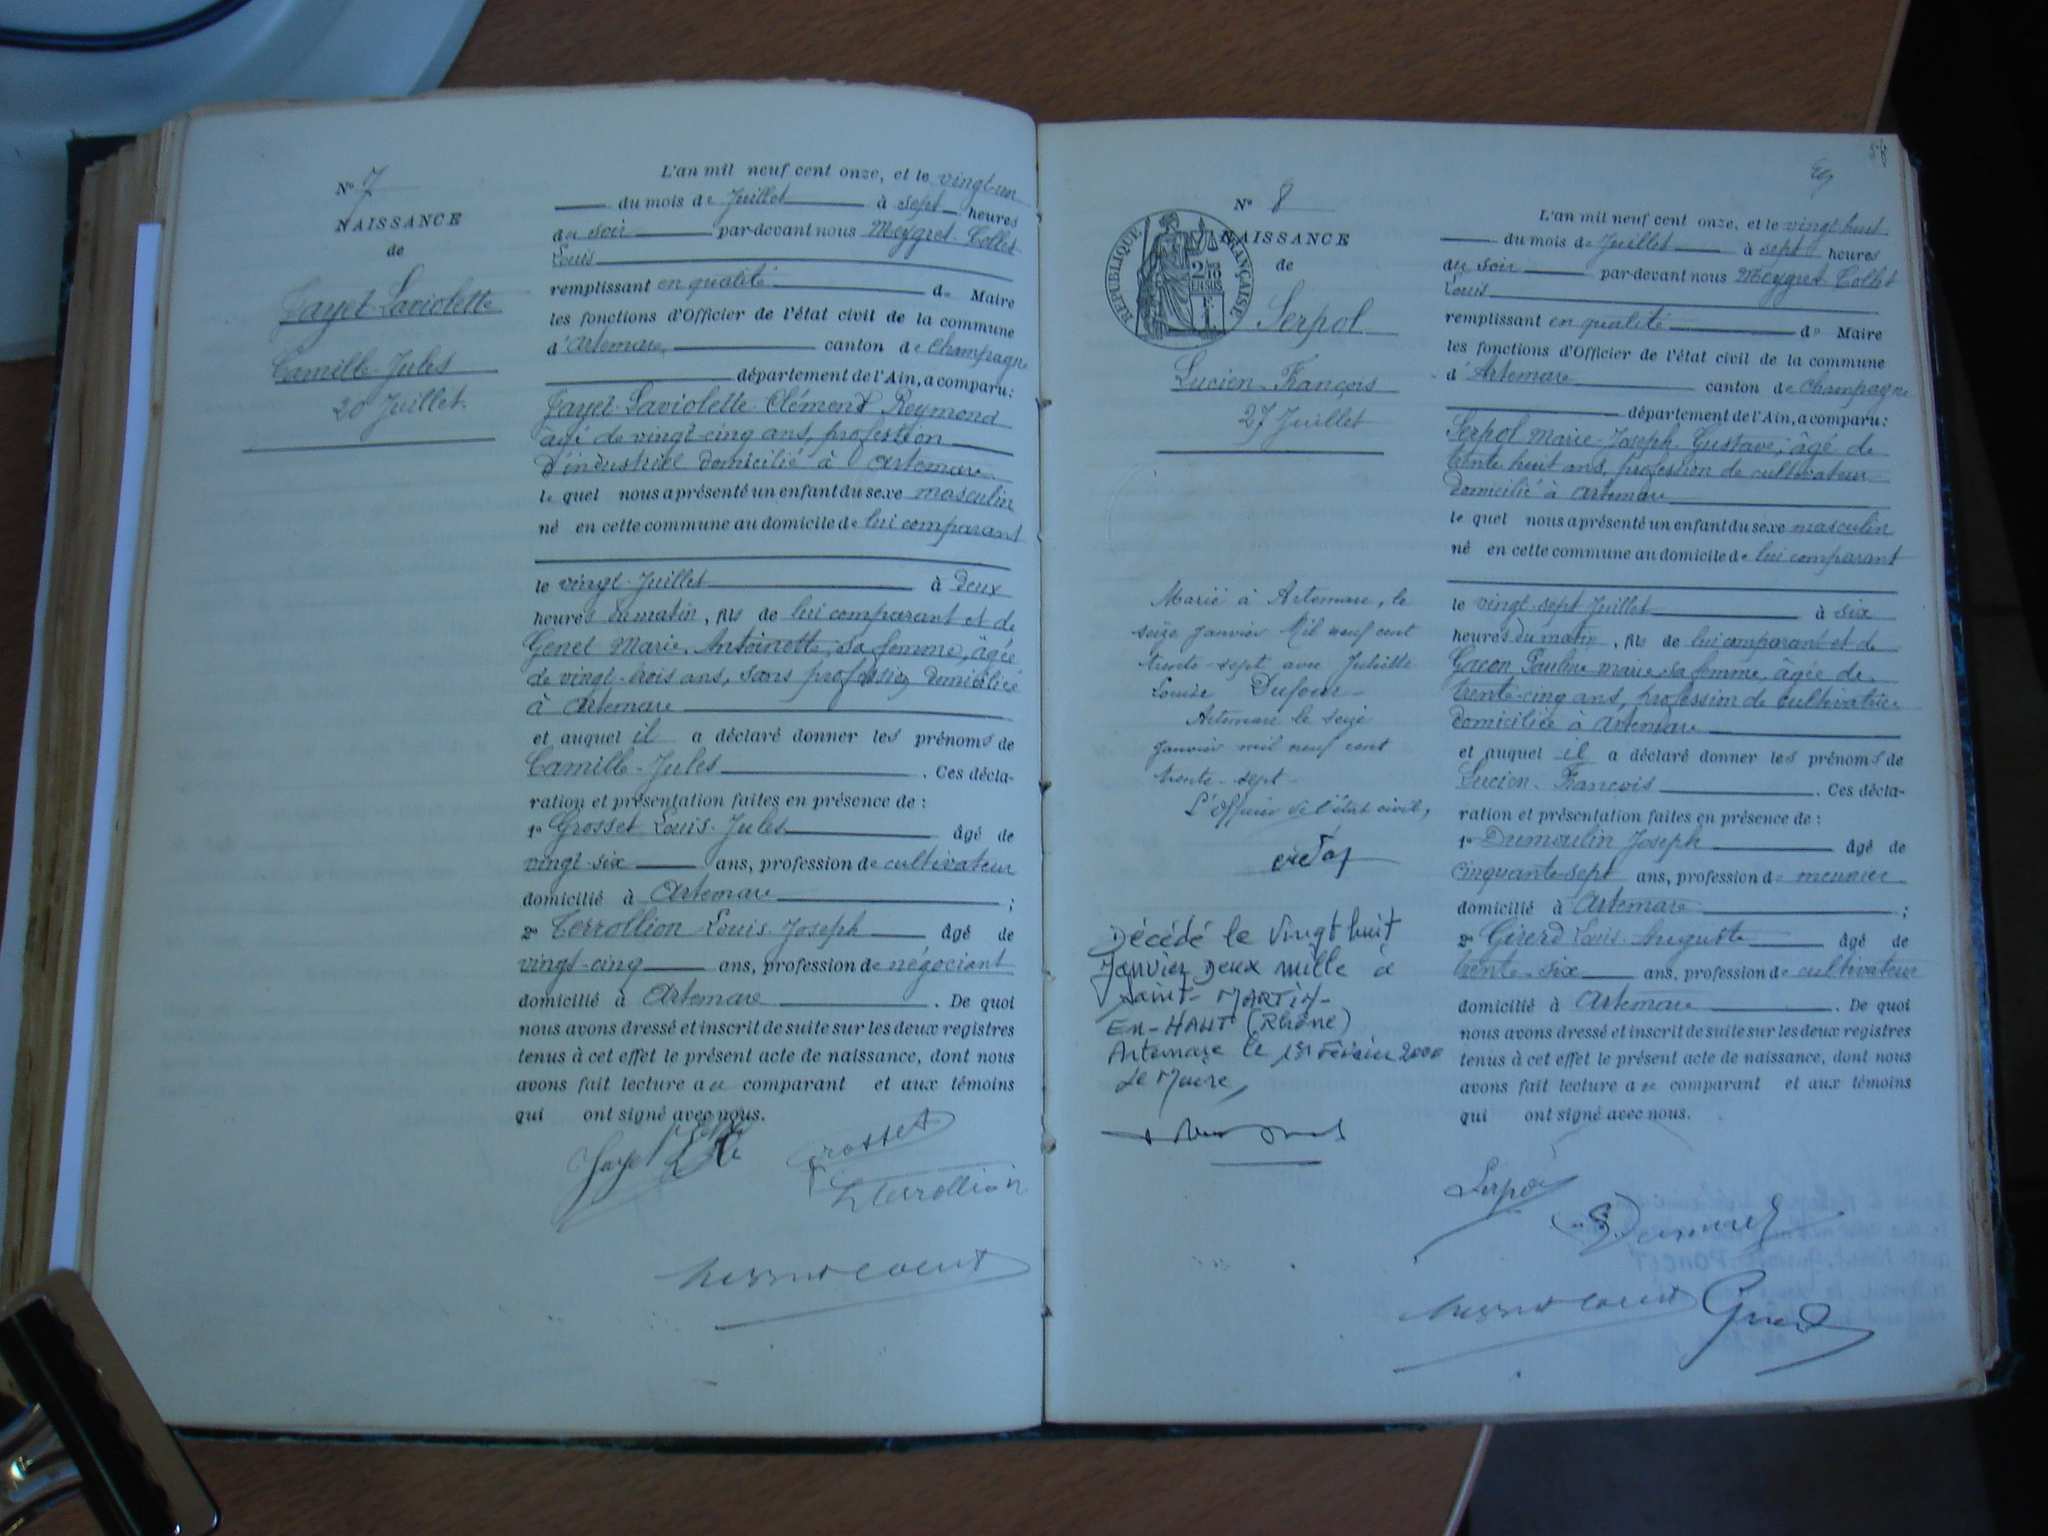 Nº 7
NAISSANCE
de
Fayet-Laviolette
Camille-Jules
20 Juillet
L'an mil neuf cent onze, et le vingt-un
du mois de Juillet à sept heures
du soir par-devant nous Meygret-Collet
Louis
remplissant en qualité de Maire
les fonctions d'Officier de l'état civil de la commune
d'Artemare, canton de Champagne
département de l'Ain, a comparu:
Fayet-Laviolette Clément Reymond
âgé de vingt-cinq ans, profession
d'industriel domicilié à Artemare
le quel nous a présenté un enfant du sexe masculin
né en cette commune au domicile de lui comparant
le vingt-Juillet à deux
heures du matin, fils de lui comparant et de
Genet Marie-Antoinette, sa femme, âgée
de vingt-trois ans, sans profession domiciliée
à Artemare
et auquel il a déclaré donner les prénoms de
Camille-Jules. Ces décla-
ration et présentation faites en présence de:
1º Grosset Louis-Jules âgé de
vingt-six ans, profession de cultivateur
domicilié à Artemare;
2º Terrollion Louis-Joseph âgé de
vingt-cinq ans, profession de négociant
domicilié à Artemare. De quoi
nous avons dressé et inscrit de suite sur les deux registres
tenus à cet effet le présent acte de naissance, dont nous
avons fait lecture au comparant et aux témoins
qui ont signé avec nous.
Grosset
L Terrollion
Nº 8
NAISSANCE
de
RÉPUBLIQUE FRANÇAISE
Serpol
Lucien-François
27 Juillet
L'an mil neuf cent onze, et le vingt huit
du mois de Juillet à sept heures
du soir par-devant nous Meygret-Collet
Louis
remplissant en qualité de Maire
les fonctions d'Officier de l'état civil de la commune
d'Artemare canton de Champagne
département de l'Ain, a comparu:
Serpol Marie-Joseph-Gustave, âgé de
trente huit ans, profession de cultivateur
domicilié à Artemare
le quel nous a présenté un enfant du sexe masculin
né en cette commune au domicile de lui comparant
le vingt-sept Juillet à six
heures du matin, fils de lui comparant et de
Gacon Pauline-Marie sa femme, âgée de
trente-cinq ans, profession de cultivatrice
domiciliée à Artemare
et auquel il a déclaré donner les prénoms de
Lucien-François. Ces décla-
ration et présentation faites en présence de:
1º Dumoulin Joseph âgé de
cinquante-sept ans, profession de meunier
domicilié à Artemare;
2º Girerd Louis-Auguste âgé de
trente-six ans, profession de cultivateur
domicilié à Artemare. De quoi
nous avons dressé et inscrit de suite sur les deux registres
tenus à cet effet le présent acte de naissance, dont nous
avons fait lecture au comparant et aux témoins
qui ont signé avec nous.
Serpol
Girerd
Marié à Artemare, le
seize janvier Mil neuf cent
trente-sept avec Juliette
Louise Dufour-
Artemare le seize
janvier mil neuf cent
trente-sept-
L'Officier de l'état civil,
Décédé le vingt huit
Janvier Deux mille à
Saint-MARTIN-
EN-HAUT (Rhône)
Artemare le 1er Février 2000
Le Maire,